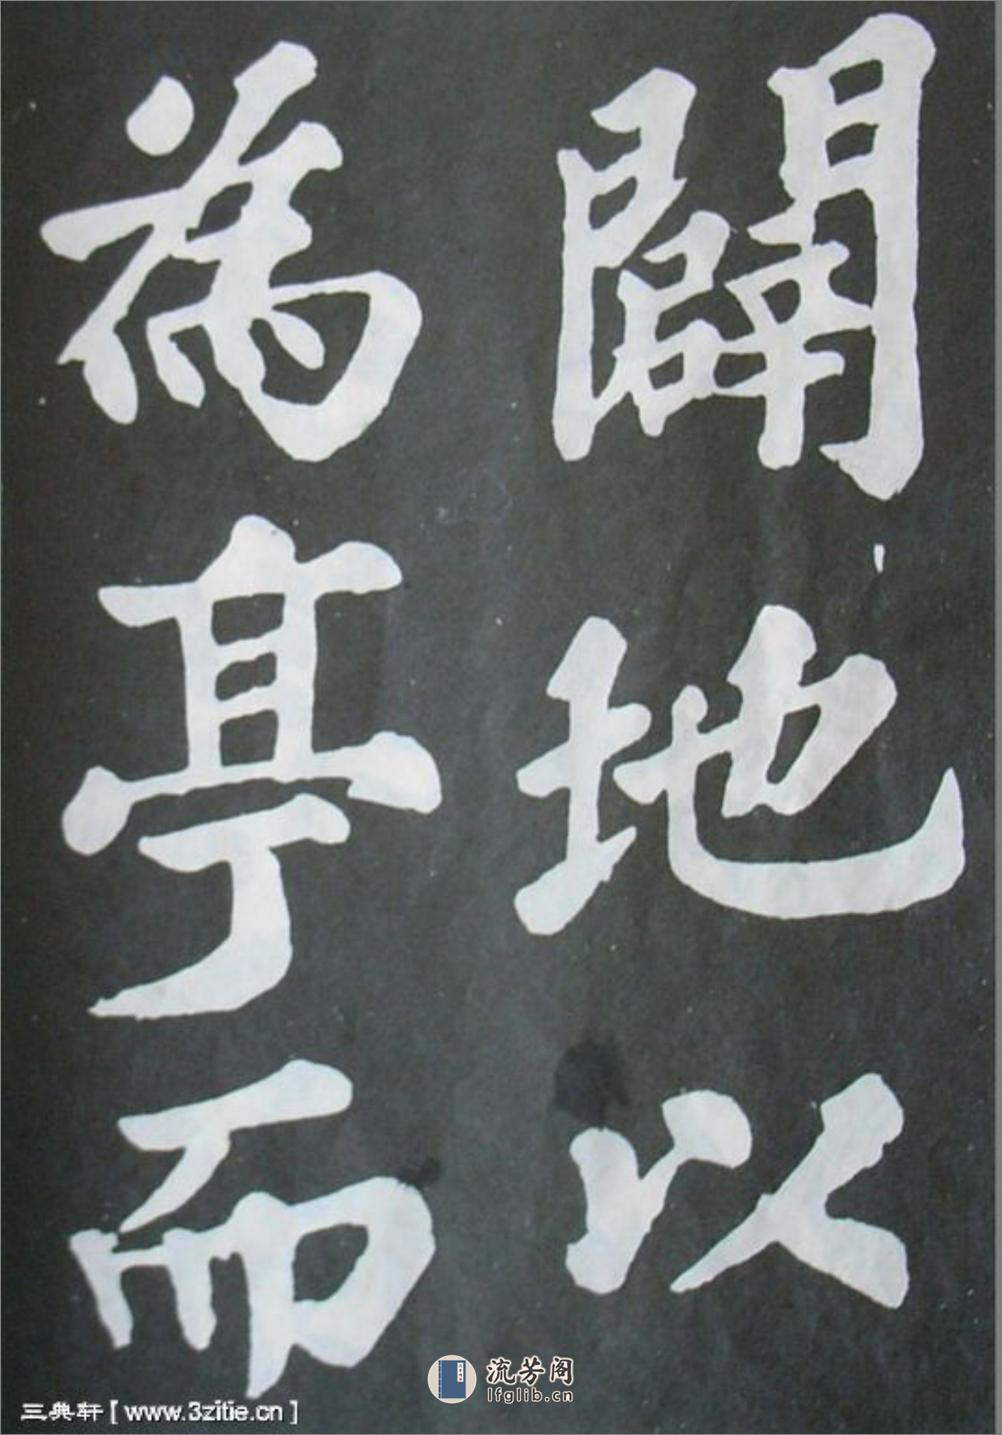 闢地以
為亭而
流芳阁
lfglib.cn
三典轩[www.3zitie.cn]